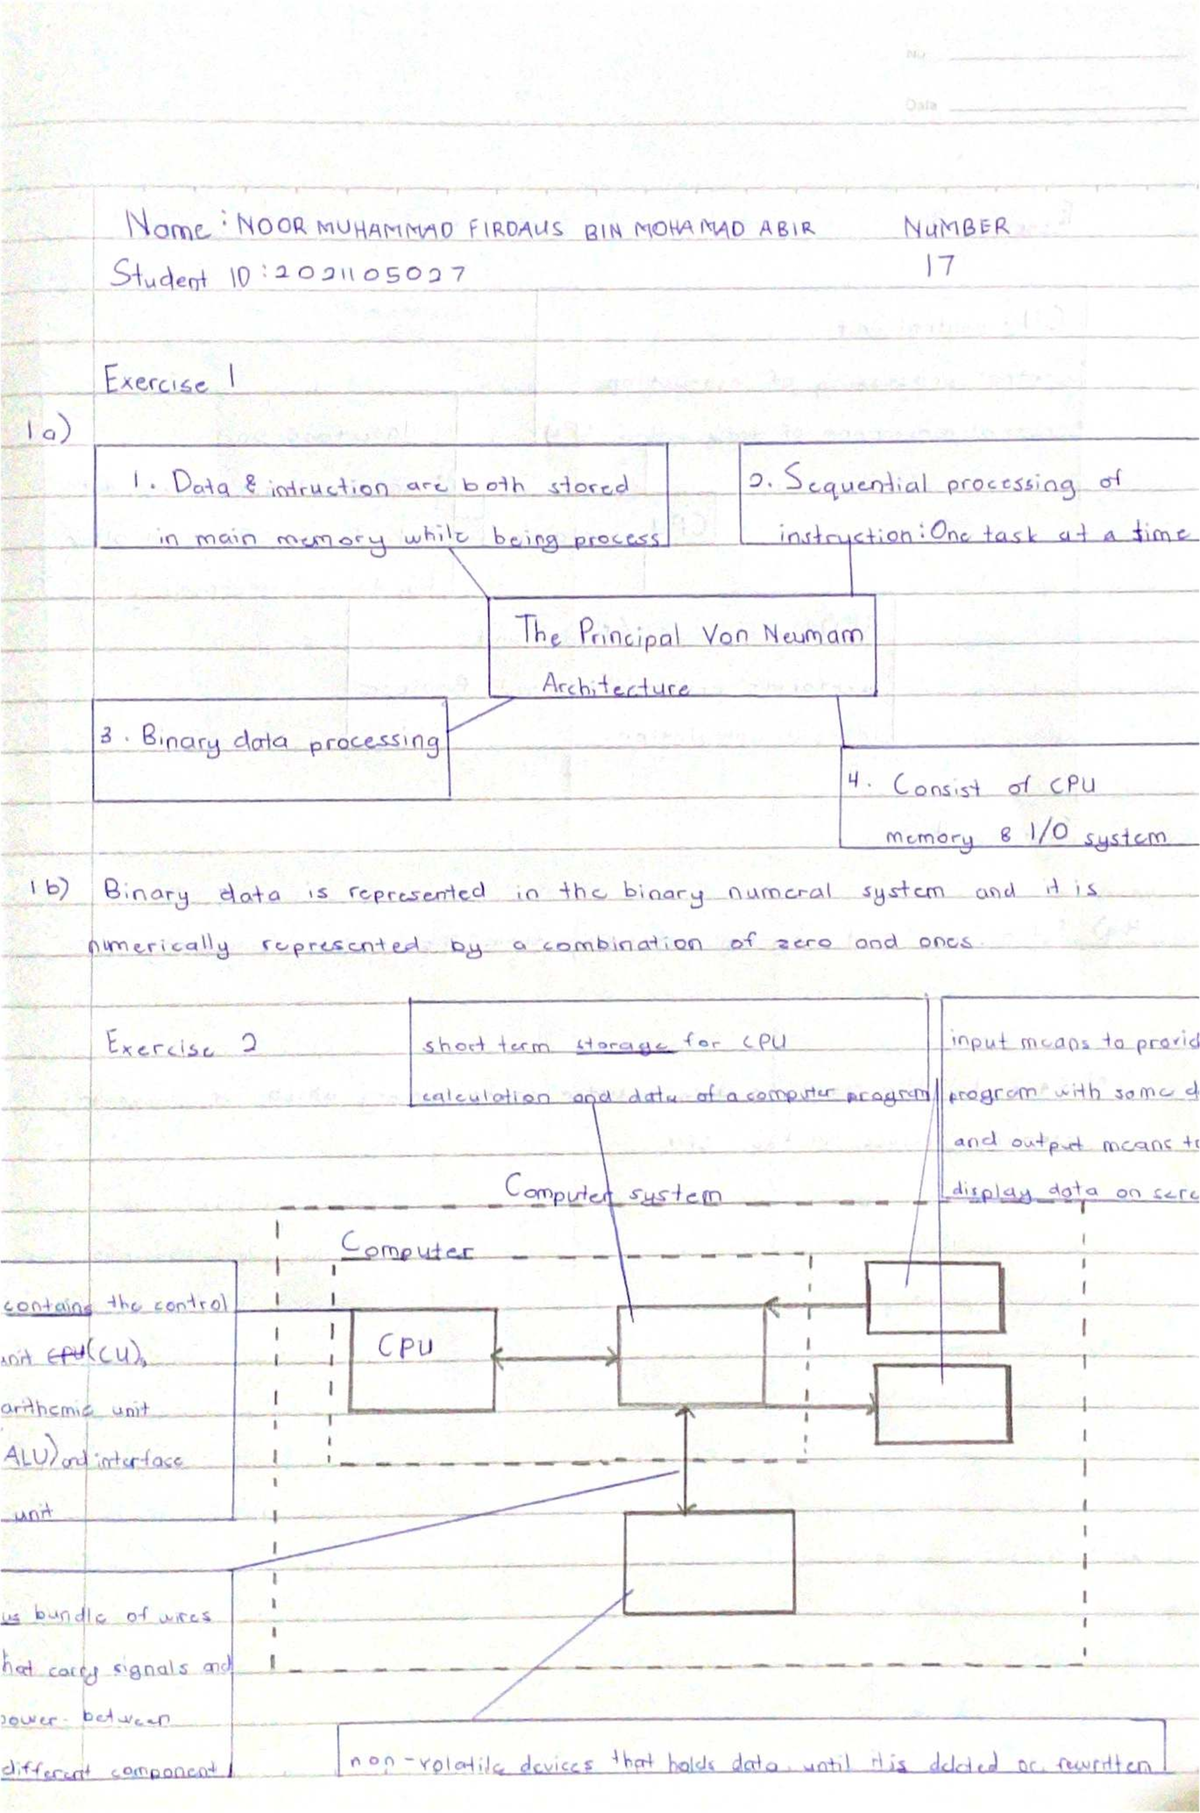 No
Date
Name : NOOR MUHAMMAD FIRDAUS BIN MOHAMAD ABIR NUMBER
Student ID : 2021105027 17
Exercise 1
1a)
1. Data & intruction are both stored
in main memory while being process
2. Sequential processing of
instruction : One task at a time
The Principal Von Neumam
Architecture
3. Binary data processing
4. Consist of CPU
memory & I/O system
1b) Binary data is represented in the binary numeral system and it is
numerically represented by a combination of zero and ones
Exercise 2
short term storage for CPU
calculation and data of a computer program
input means to provid
program with some d
and output means to
display data on scre
Computer system
Computer
contains the control
unit CPU (CU),
arithemic unit
ALU) and interface
unit
CPU
us bundle of wires
hat carry signals and
power between
different component
non-volatile devices that holds data until it is deleted or rewritten